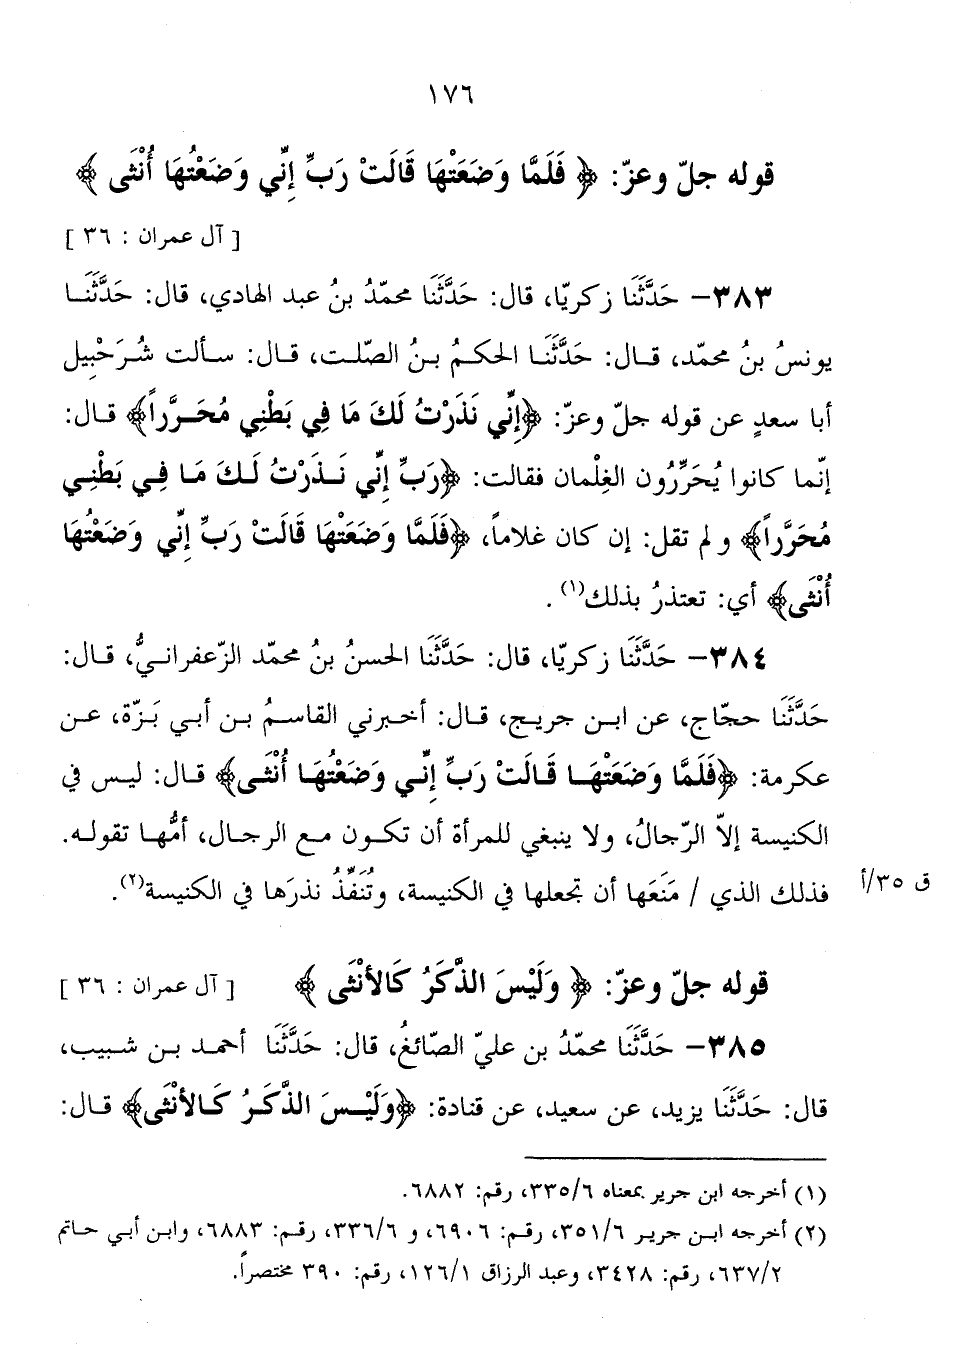 ١٧٦
قوله جلّ وعزّ: ﴿ فَلَمَّا وَضَعَتْهَا قَالَتْ رَبِّ إِنِّي وَضَعْتُهَا أُنْثَى ﴾
[ آل عمران : ٣٦ ]
٣٨٣– حَدَّثَنَا زكريّا، قال: حَدَّثَنَا محمّدُ بنُ عبد الهادي، قال: حَدَّثَنَا
يونسُ بنُ محمّد، قال: حَدَّثَنَا الحكمُ بنُ الصّلت، قال: سألت شُرَحْبِيل
أبا سعدٍ عن قوله جلّ وعزّ: ﴿إِنِّي نَذَرْتُ لَكَ مَا فِي بَطْنِي مُحَرَّراً﴾ قال:
إنّما كانوا يُحَرِّرُون الغِلْمان فقالت: ﴿رَبِّ إِنِّي نَذَرْتُ لَكَ مَا فِي بَطْنِي
مُحَرَّراً﴾ و لم تقل: إن كان غلاماً، ﴿فَلَمَّا وَضَعَتْهَا قَالَتْ رَبِّ إِنِّي وَضَعْتُهَا
أُنْثَى﴾ أي: تعتذرُ بذلك(١) .
٣٨٤– حَدَّثَنَا زكريّا، قال: حَدَّثَنَا الحسنُ بنُ محمّد الزّعفرانيُّ، قال:
حَدَّثَنَا حجّاج، عن ابن جريج، قال: أخبرني القاسمُ بن أبي بَزّة، عن
عكرمة: ﴿فَلَمَّا وَضَعَتْهَا قَالَتْ رَبِّ إِنِّي وَضَعْتُهَا أُنْثَى﴾ قال: ليس في
الكنيسة إلاّ الرّجالُ، ولا ينبغي للمرأة أن تكون مع الرجال، أمُّها تقوله.
فذلك الذي / مَنَعَها أن تجعلها في الكنيسة، وتُنَفِّذُ نذرَها في الكنيسة(٢).
ق ٣٥/أ
قوله جلّ وعزّ: ﴿ وَلَيْسَ الذَّكَرُ كَالأُنْثَى ﴾ [ آل عمران : ٣٦ ]
٣٨٥– حَدَّثَنَا محمّدُ بن عليّ الصّائغُ، قال: حَدَّثَنَا أحمد بن شبيب،
قال: حَدَّثَنَا يزيد، عن سعيد، عن قتادة: ﴿وَلَيْسَ الذَّكَرُ كَالأُنْثَى﴾ قال:
(١) أخرجه ابن جرير بمعناه ٣٣٥/٦، رقم: ٦٨٨٢.
(٢) أخرجه ابن جرير ٣٥١/٦، رقم: ٦٩٠٦، و ٣٣٦/٦، رقم: ٦٨٨٣، وابن أبي حاتم
٦٣٧/٢، رقم: ٣٤٢٨، وعبد الرزاق ١٢٦/١، رقم: ٣٩٠ مختصراً.